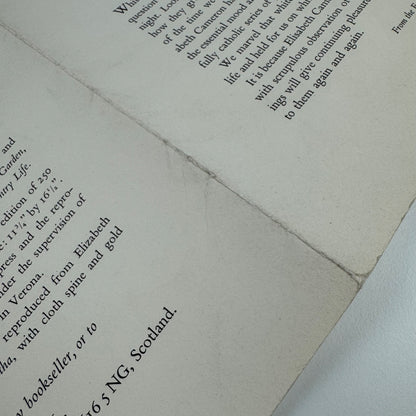 question
light. Loo
how they g
of the time w
abeth Cameron ha
the essential mood a
fully catholic series of
We marvel that whit
life and held for us on whi
It is because Elisabeth Cam
with scrupulous observation of
ings will give continuing pleasur
to them again and again.
From the F
and
Garden,
try Life.
edition of 250
e: 11¾" by 16½".
press and the repro-
der the supervision of
in Verona.
reproduced from Elizabeth
tha, with cloth spine and gold
y bookseller, or to
G6 5 NG, Scotland.